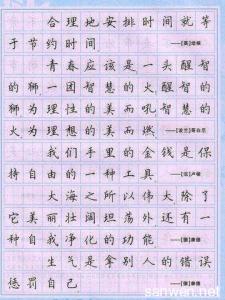 合理地安排时间就等
于节约时间
——[英]培根
青春应该是一头醒智
的狮一团智慧的火醒智的
狮为理性的美而吼智慧的
火为理想的美而燃
——[波兰]哥白尼
我们手里的金钱是保
持自由的一种工具
——[法]卢梭
大海之所以伟大除了
它美丽壮阔坦荡外还有一
种自我净化的功能
——[德]康德
生气是拿别人的错误
惩罚自己
——[德]康德
www.sanwen.net